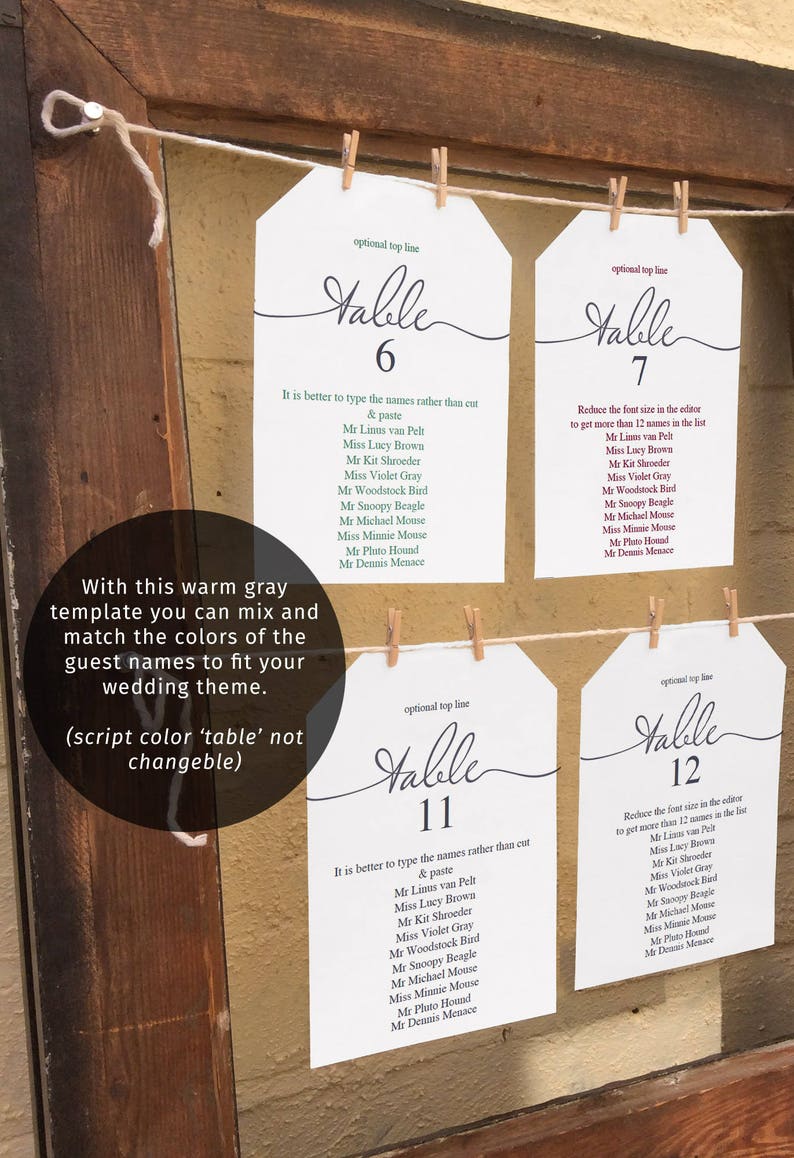 optional top line
table
6
It is better to type the names rather than cut
& paste
Mr Linus van Pelt
Miss Lucy Brown
Mr Kit Shroeder
Miss Violet Gray
Mr Woodstock Bird
Mr Snoopy Beagle
Mr Michael Mouse
Miss Minnie Mouse
Mr Pluto Hound
Mr Dennis Menace
optional top line
table
7
Reduce the font size in the editor
to get more than 12 names in the list
Mr Linus van Pelt
Miss Lucy Brown
Mr Kit Shroeder
Miss Violet Gray
Mr Woodstock Bird
Mr Snoopy Beagle
Mr Michael Mouse
Miss Minnie Mouse
Mr Pluto Hound
Mr Dennis Menace
With this warm gray
template you can mix and
match the colors of the
guest names to fit your
wedding theme.
(script color ‘table’ not
changeble)
optional top line
table
11
It is better to type the names rather than cut
& paste
Mr Linus van Pelt
Miss Lucy Brown
Mr Kit Shroeder
Miss Violet Gray
Mr Woodstock Bird
Mr Snoopy Beagle
Mr Michael Mouse
Miss Minnie Mouse
Mr Pluto Hound
Mr Dennis Menace
optional top line
table
12
Reduce the font size in the editor
to get more than 12 names in the list
Mr Linus van Pelt
Miss Lucy Brown
Mr Kit Shroeder
Miss Violet Gray
Mr Woodstock Bird
Mr Snoopy Beagle
Mr Michael Mouse
Miss Minnie Mouse
Mr Pluto Hound
Mr Dennis Menace